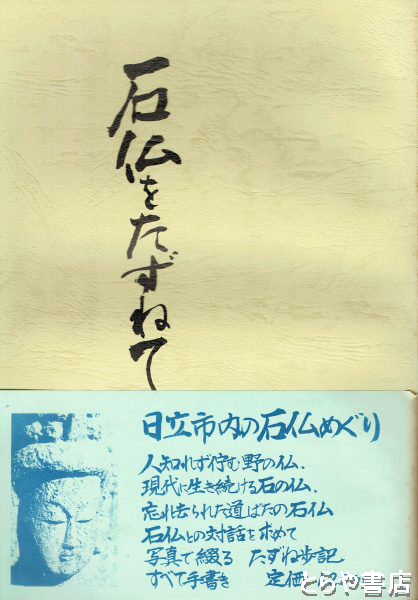 石仏をたずねて
日立市内の石仏めぐり
人知れず佇む野の仏.
現代に生き続ける石の仏.
忘れ去られた道ばたの石仏
石仏との対話を求めて
写真で綴る たずね歩記
すべて手書き 定価
とらや書店